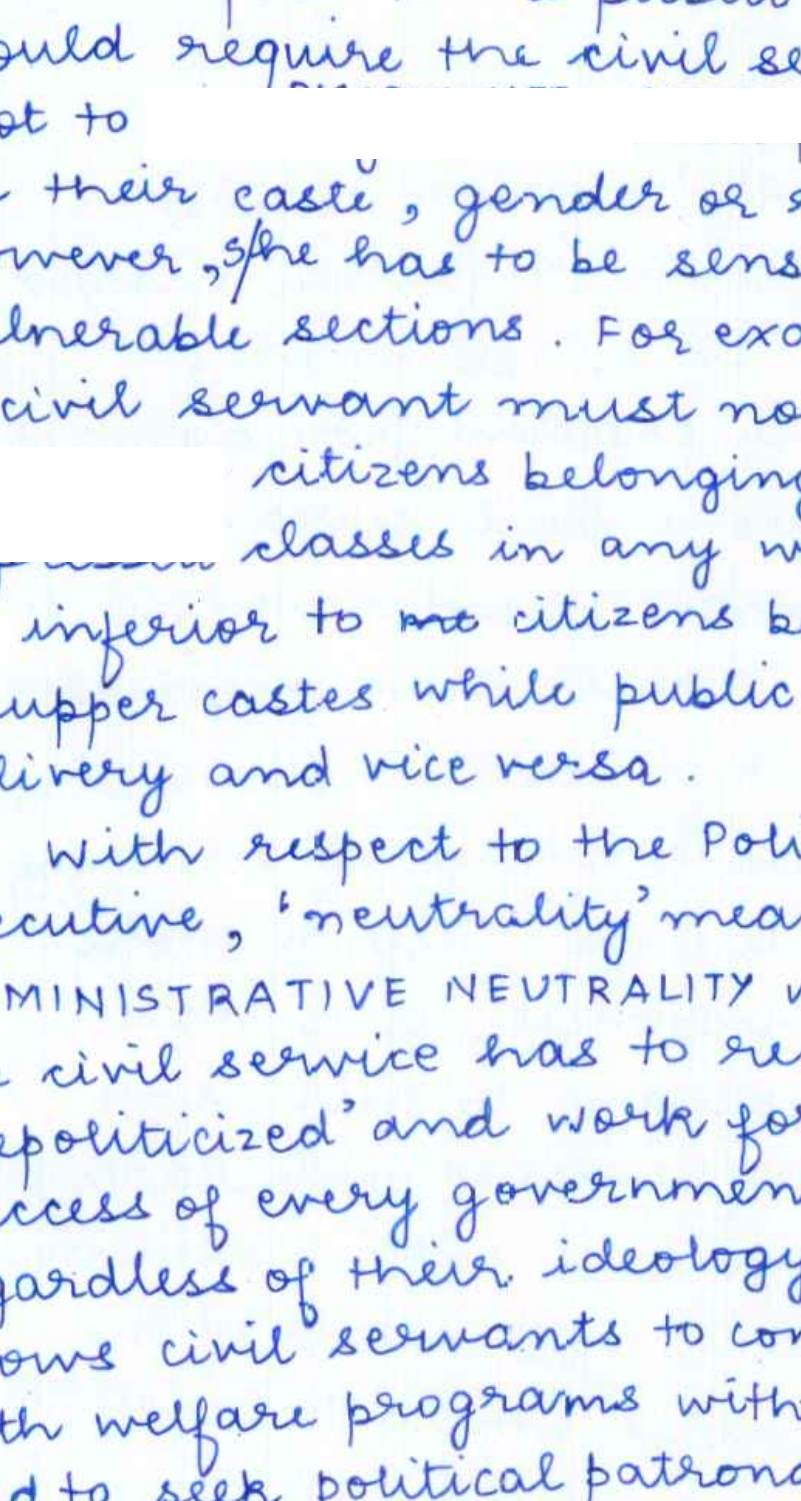 ould require the civil se
ot to
their caste, gender or s
wever, s/he has to be sens
lnerable sections. For exa
civil servant must no
citizens belonging
classes in any w
inferior to citizens b
upper castes while public
livery and vice versa.
With respect to the Poli
ecutive, 'neutrality' mea
MINISTRATIVE NEUTRALITY
civil service has to re
epoliticized' and work for
ccess of every governmen
gardless of their ideology
ows civil servants to con
th welfare programs with
d to seek political patrona